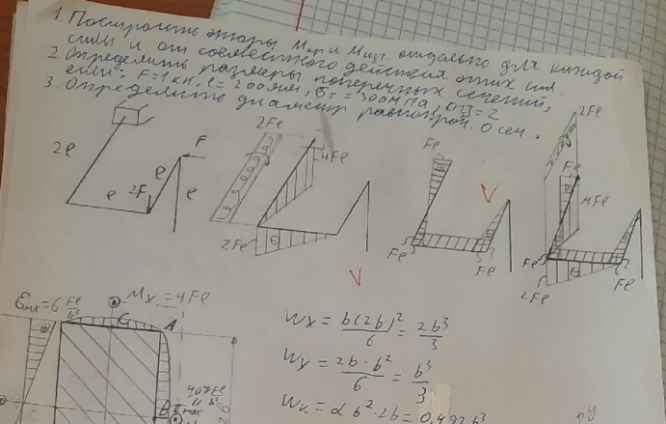 1. Построить эпюры Мкр и Мизг. отдельно для каждой
силы и от совместного действия этих сил.
2. Определить размеры поперечных сечений,
если: F=1кн, l=200мм, σт=300мПа, [n]=2
3. Определить диаметр равнопроч. О сеч.
2l
l
2F
l
F
l
2Fl
4Fl
2Fl
Fl
Fl
Fl
2Fl
Fl
4Fl
Fl
2Fl
Fl
Mx=4Fl
=6 Fl/b²
A
B
Wx = b(2b)²/6 = 2b³/3
Wy = 2b·b²/6 = b³/3
Wк = αb²·2b = 0,492b³